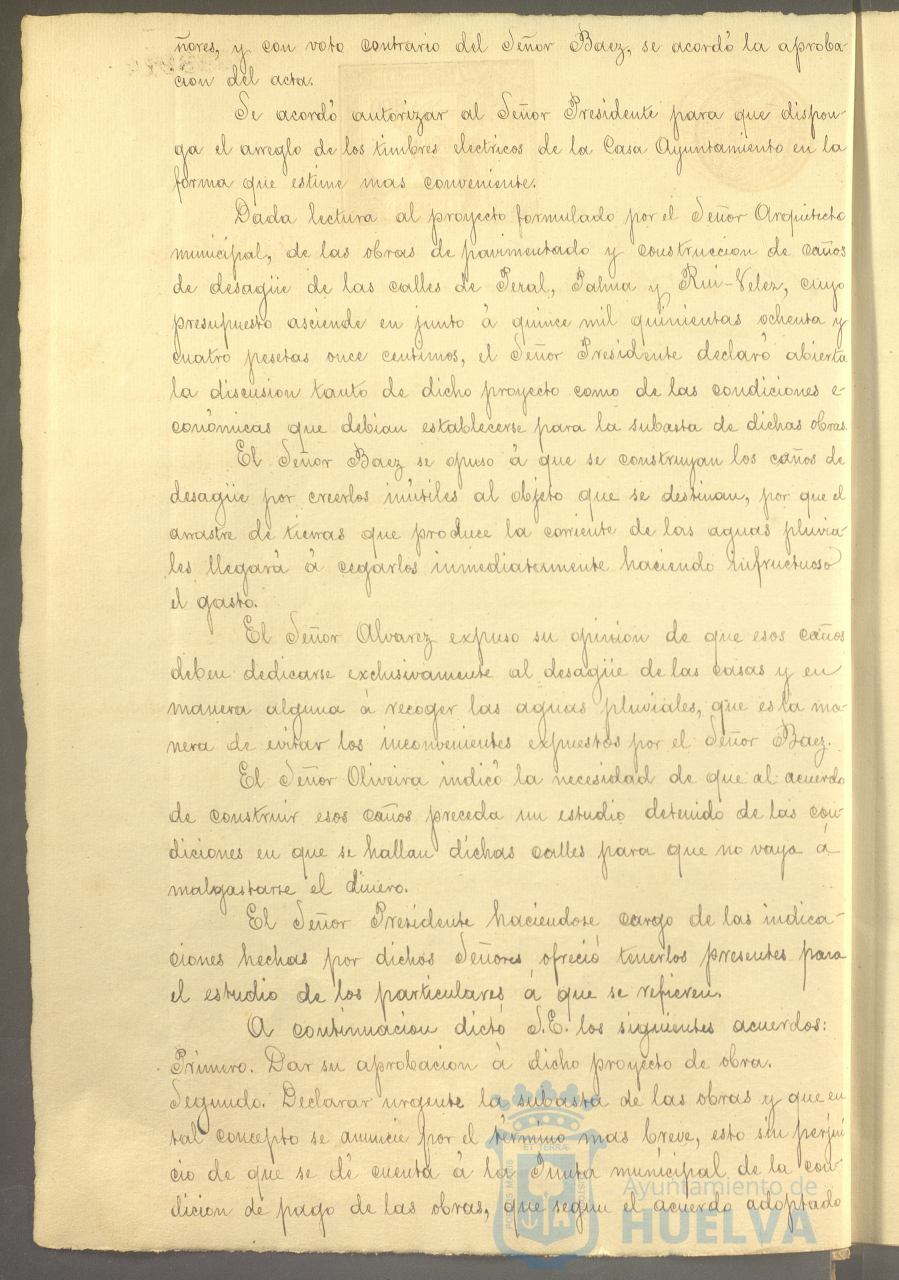 ñores, y con voto contrario del Señor Baez, se acordó la aproba-
cion del acta.
Se acordó autorizar al Señor Presidente para que dispon-
ga el arreglo de los timbres electricos de la Casa Ayuntamiento en la
forma que estime mas conveniente.
Dada lectura al proyecto formulado por el Señor Arquitecto
municipal, de las obras de pavimentado y construccion de caños
de desagüe de las calles de Peral, Palma y Rui-Velez, cuyo
presupuesto asciende en junto á quince mil quinientas ochenta y
cuatro pesetas once centimos, el Señor Presidente declaró abierta
la discusion tanto de dicho proyecto como de las condiciones e-
conómicas que debian establecerse para la subasta de dichas obras.
El Señor Baez se opuso á que se construyan los caños de
desagüe por creerlos inútiles al objeto que se destinan, por que el
arrastre de tierras que produce la corriente de las aguas pluvia-
les llegará á cegarlos inmediatamente haciendo infructuoso
el gasto.
El Señor Alvarez expuso su opinion de que esos caños
deben dedicarse exclusivamente al desagüe de las casas y en
manera alguna á recoger las aguas pluviales, que es la ma-
nera de evitar los inconvenientes expuestos por el Señor Baez.
El Señor Oliveira indicó la necesidad de que al acuerdo
de construir esos caños preceda un estudio detenido de las con-
diciones en que se hallan dichas calles para que no vaya á
malgastarse el dinero.
El Señor Presidente haciendose cargo de las indica-
ciones hechas por dichos Señores ofreció tenerlos presentes para
el estudio de los particulares á que se refieren.
A continuacion dictó S.E. los siguientes acuerdos:
Primero. Dar su aprobacion á dicho proyecto de obra.
Segundo. Declarar urgente la subasta de las obras y que en
tal concepto se anuncie por el término mas breve, esto sin perjui
cio de que se dé cuenta á la Junta municipal de la con-
dicion de pago de las obras, que segun el acuerdo adoptado
Ayuntamiento de
HUELVA